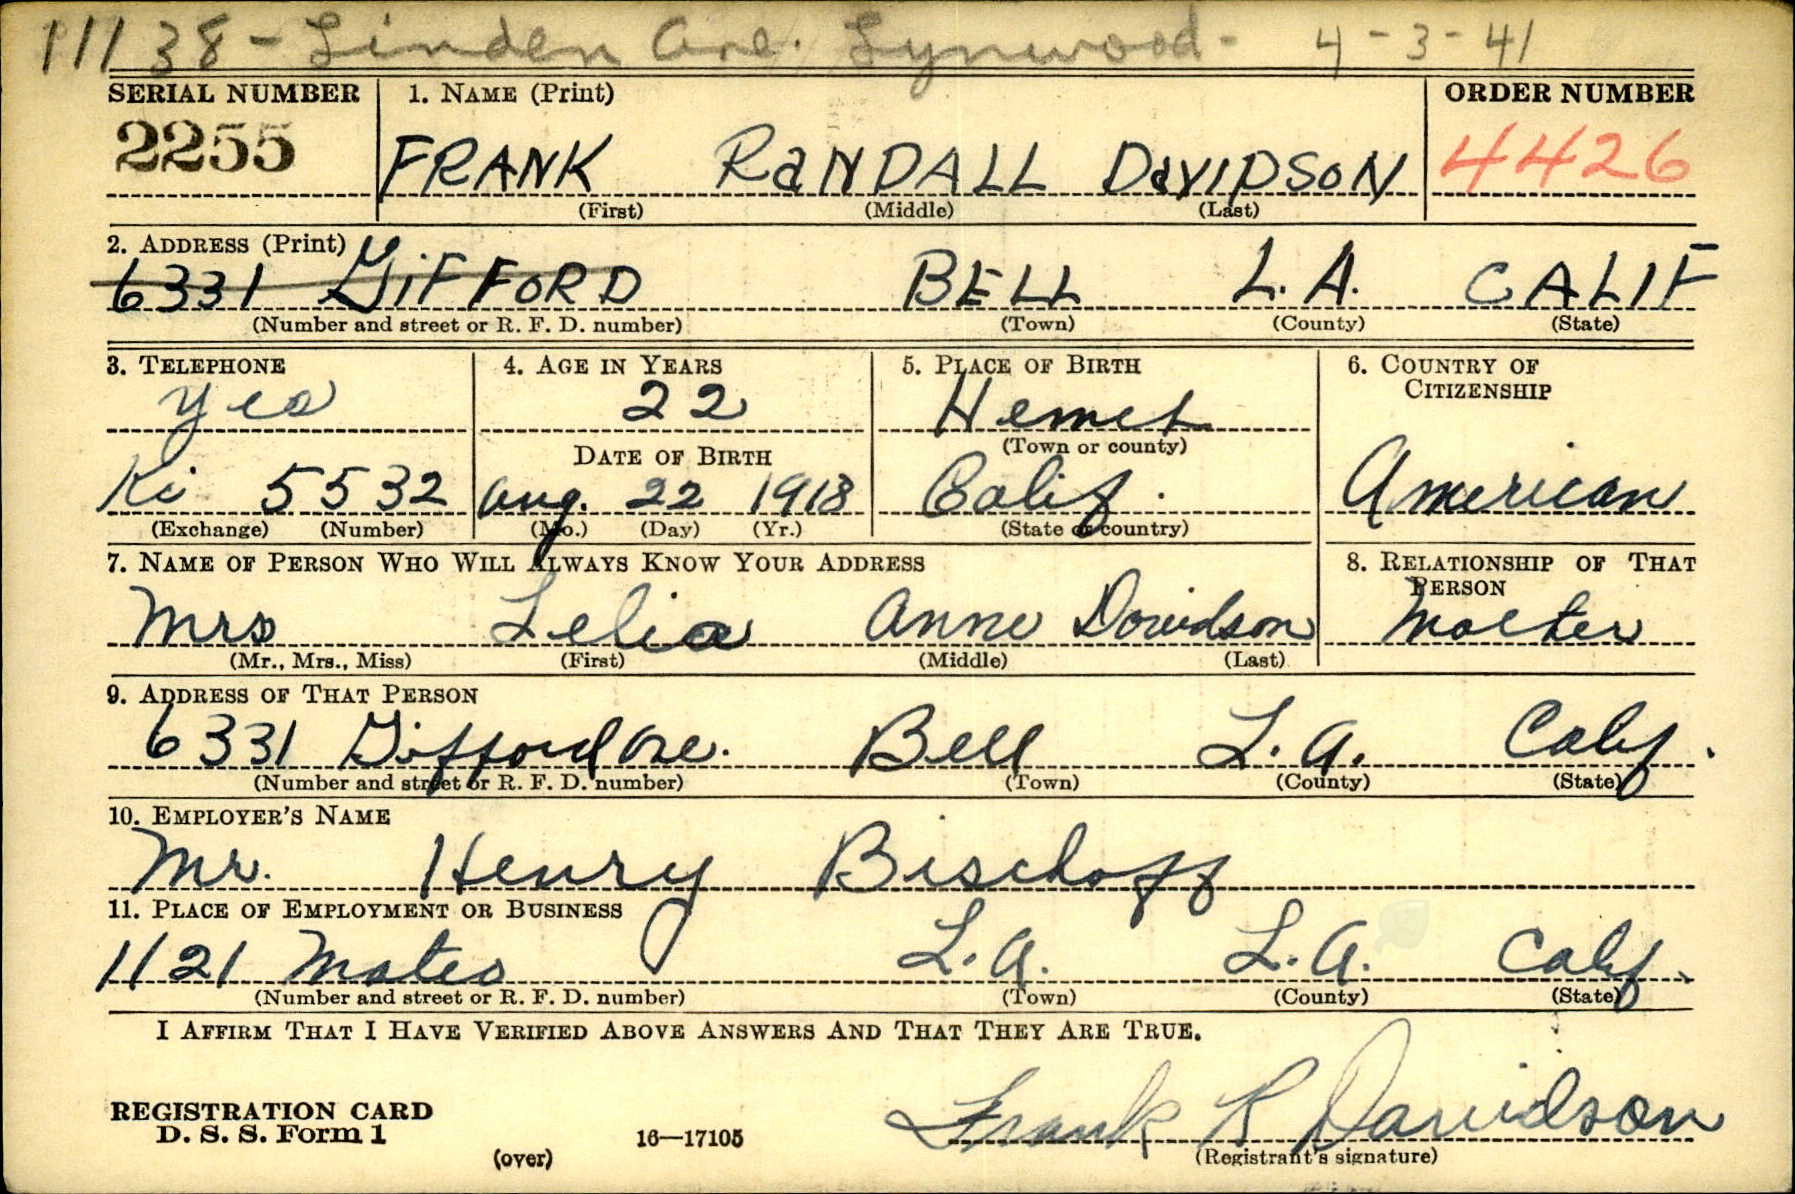 11138 - Linden Ave. Lynwood - 4-3-41
SERIAL NUMBER 1. NAME (Print) ORDER NUMBER
2255 FRANK RaNDALL DavIDSON 4426
(First) (Middle) (Last)
2. ADDRESS (Print)
6331 GiFFORD BELL L.A. CALIF
(Number and street or R. F. D. number) (Town) (County) (State)
3. TELEPHONE 4. AGE IN YEARS 5. PLACE OF BIRTH 6. COUNTRY OF CITIZENSHIP
yes 22 Hemet
(Town or county)
DATE OF BIRTH
Ki 5532 Aug. 22 1918 Calif. American
(Exchange) (Number) (Mo.) (Day) (Yr.) (State or country)
7. NAME OF PERSON WHO WILL ALWAYS KNOW YOUR ADDRESS 8. RELATIONSHIP OF THAT PERSON
Mrs Lelia Anne Davidson Mother
(Mr., Mrs., Miss) (First) (Middle) (Last)
9. ADDRESS OF THAT PERSON
6331 Gifford Ave. Bell L.A. Calif.
(Number and street or R. F. D. number) (Town) (County) (State)
10. EMPLOYER'S NAME
Mr. Henry Bischoff
11. PLACE OF EMPLOYMENT OR BUSINESS
1121 Mateo L.A. L.A. Calif.
(Number and street or R. F. D. number) (Town) (County) (State)
I AFFIRM THAT I HAVE VERIFIED ABOVE ANSWERS AND THAT THEY ARE TRUE.
REGISTRATION CARD
D. S. S. Form 1
(over) 16—17105
Frank R Davidson
(Registrant's signature)